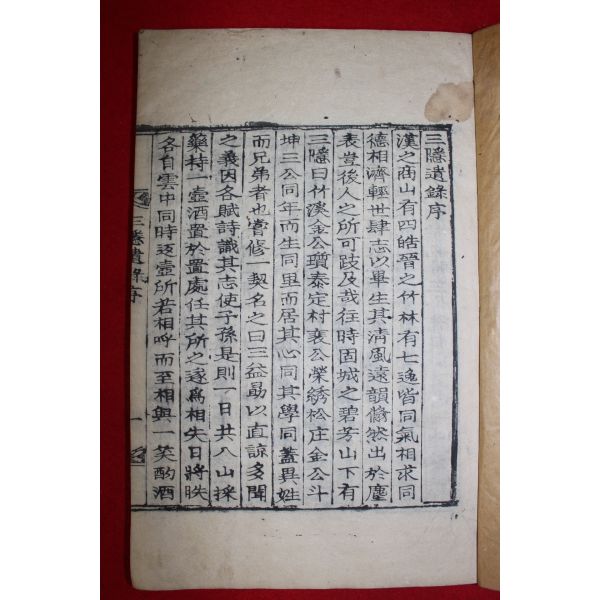 三隱遺錄序
漢之商山有四皓晉之竹林有七逸皆同氣相求同
德相濟輕世肆志以畢生其清風遠韻翛然出於塵
表豈後人之所可跂及哉往時固城之碧芳山下有
三隱曰竹溪金公瓊泰定村裵公榮綉松庄金公斗
坤三公同年而生同里而居其心同其學同蓋異姓
而兄弟者也嘗修一契名之曰三益勗以直諒多聞
之義因各賦詩識其志使子孫是則一日共入山採
藥持一壺酒置於置處任其所之遂爲相失日將昳
各自雲中同時返壺所若相呼而至相與一笑酌酒
三隱遺錄序
一